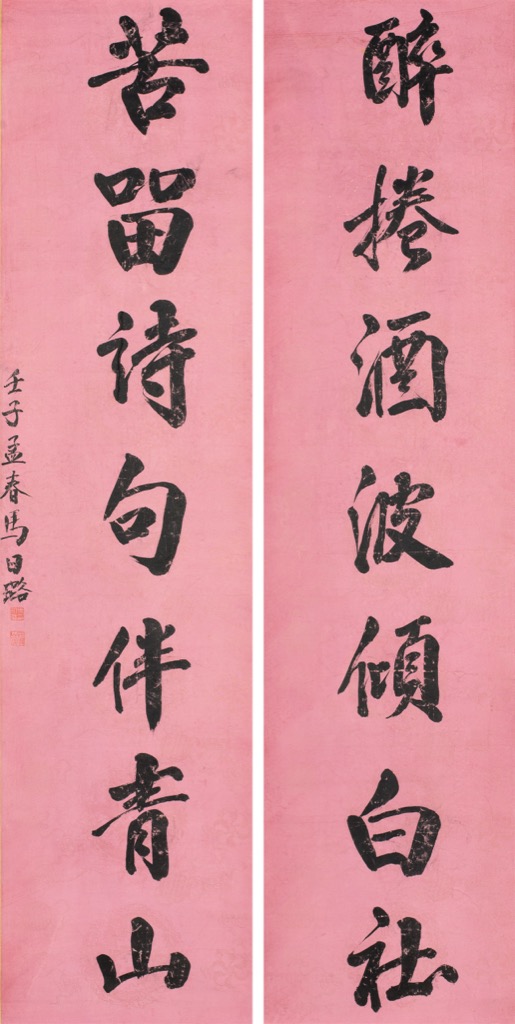 醉捲酒波傾白社
苦畱詩句伴青山
壬子孟春馬曰璐